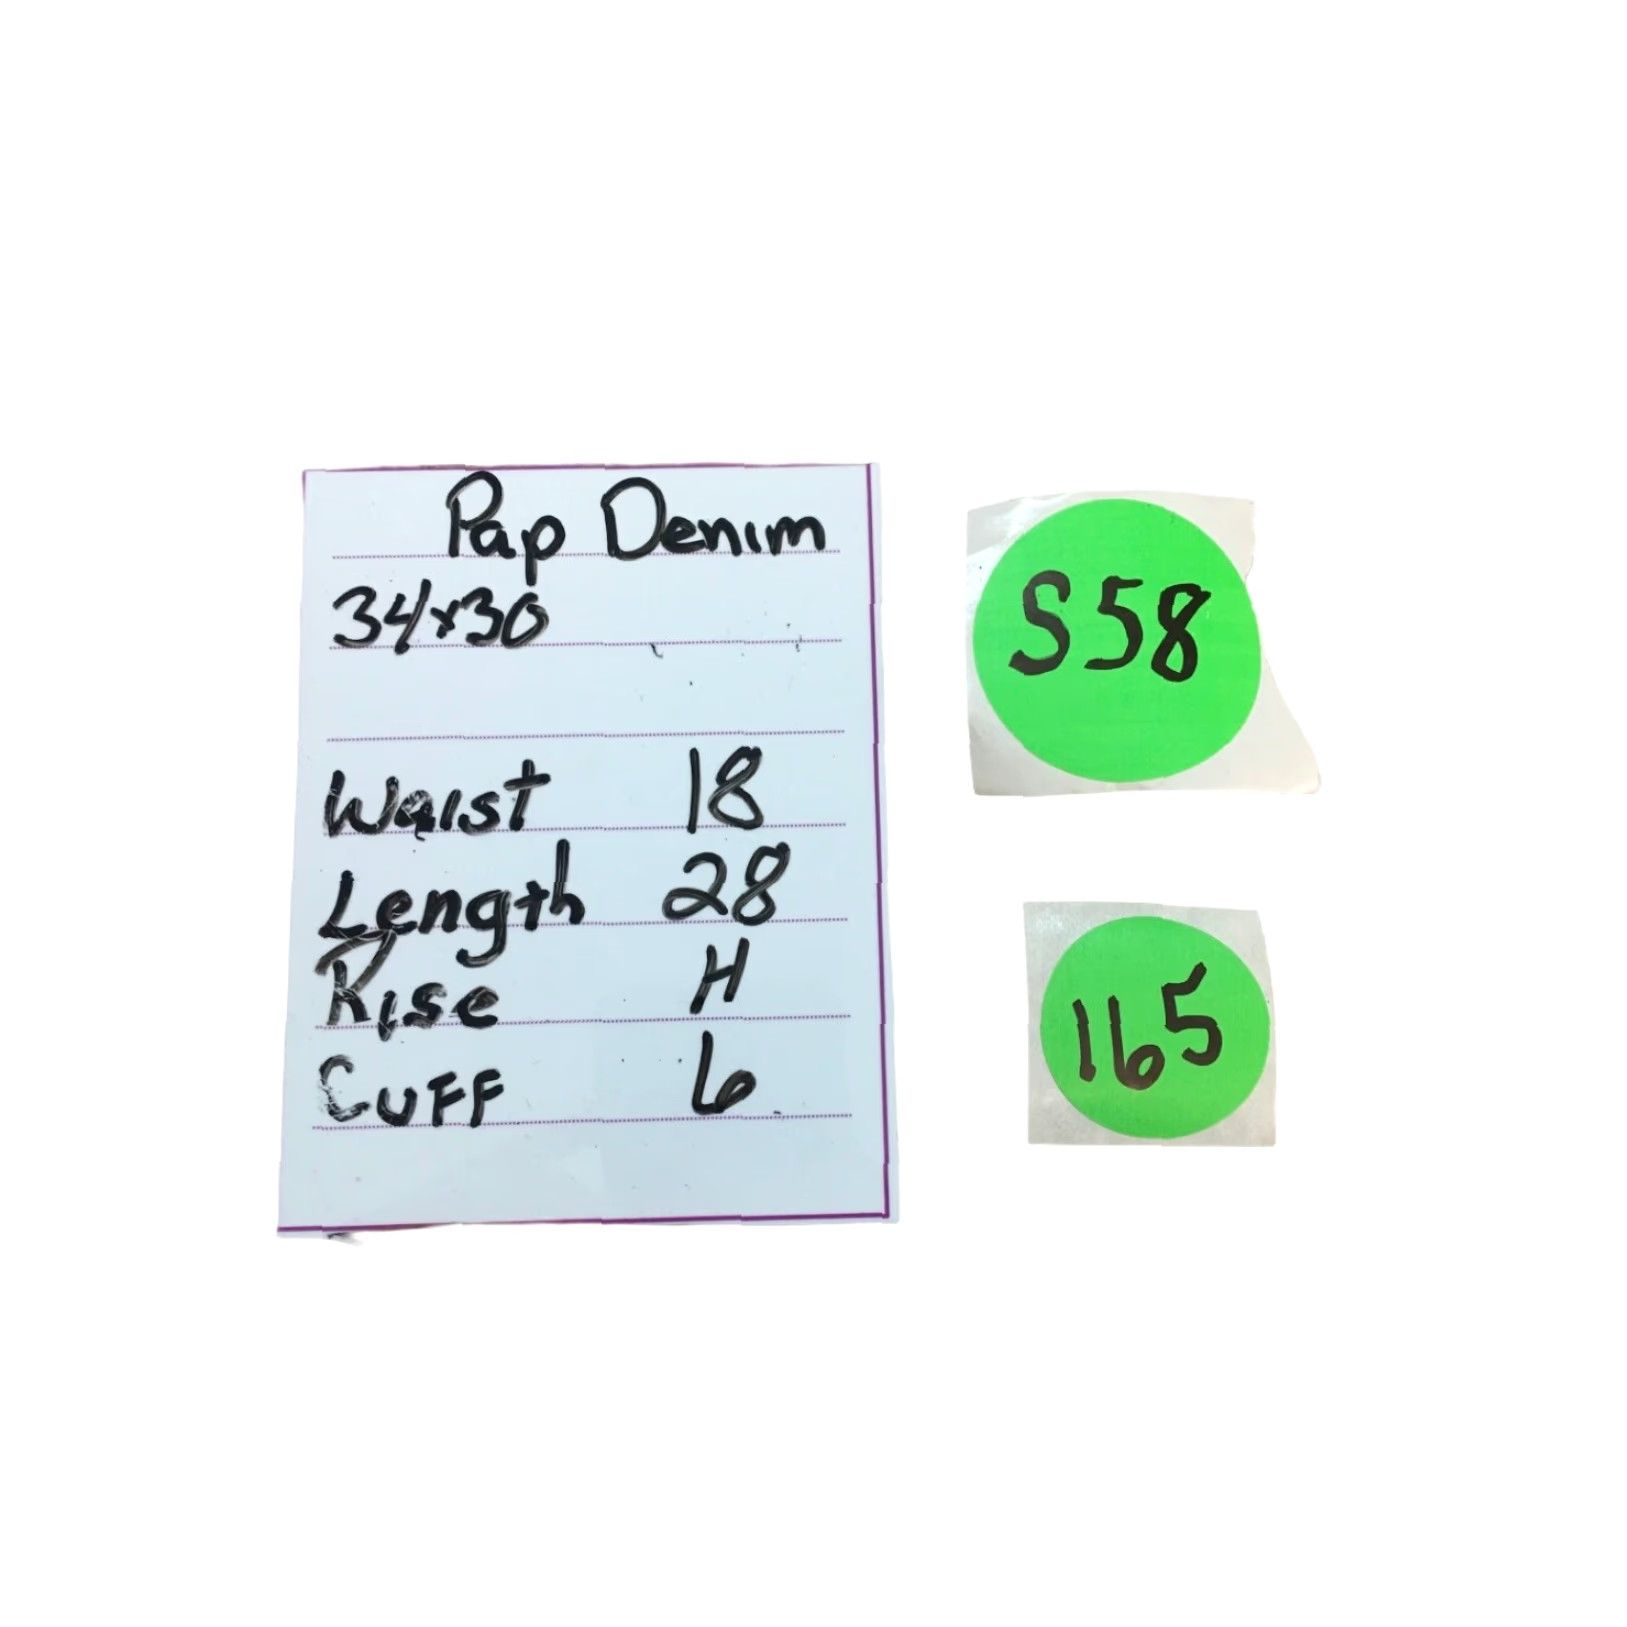 Pap Denim
34x30
Waist 18
Length 28
Rise H
Cuff 6
S58
165